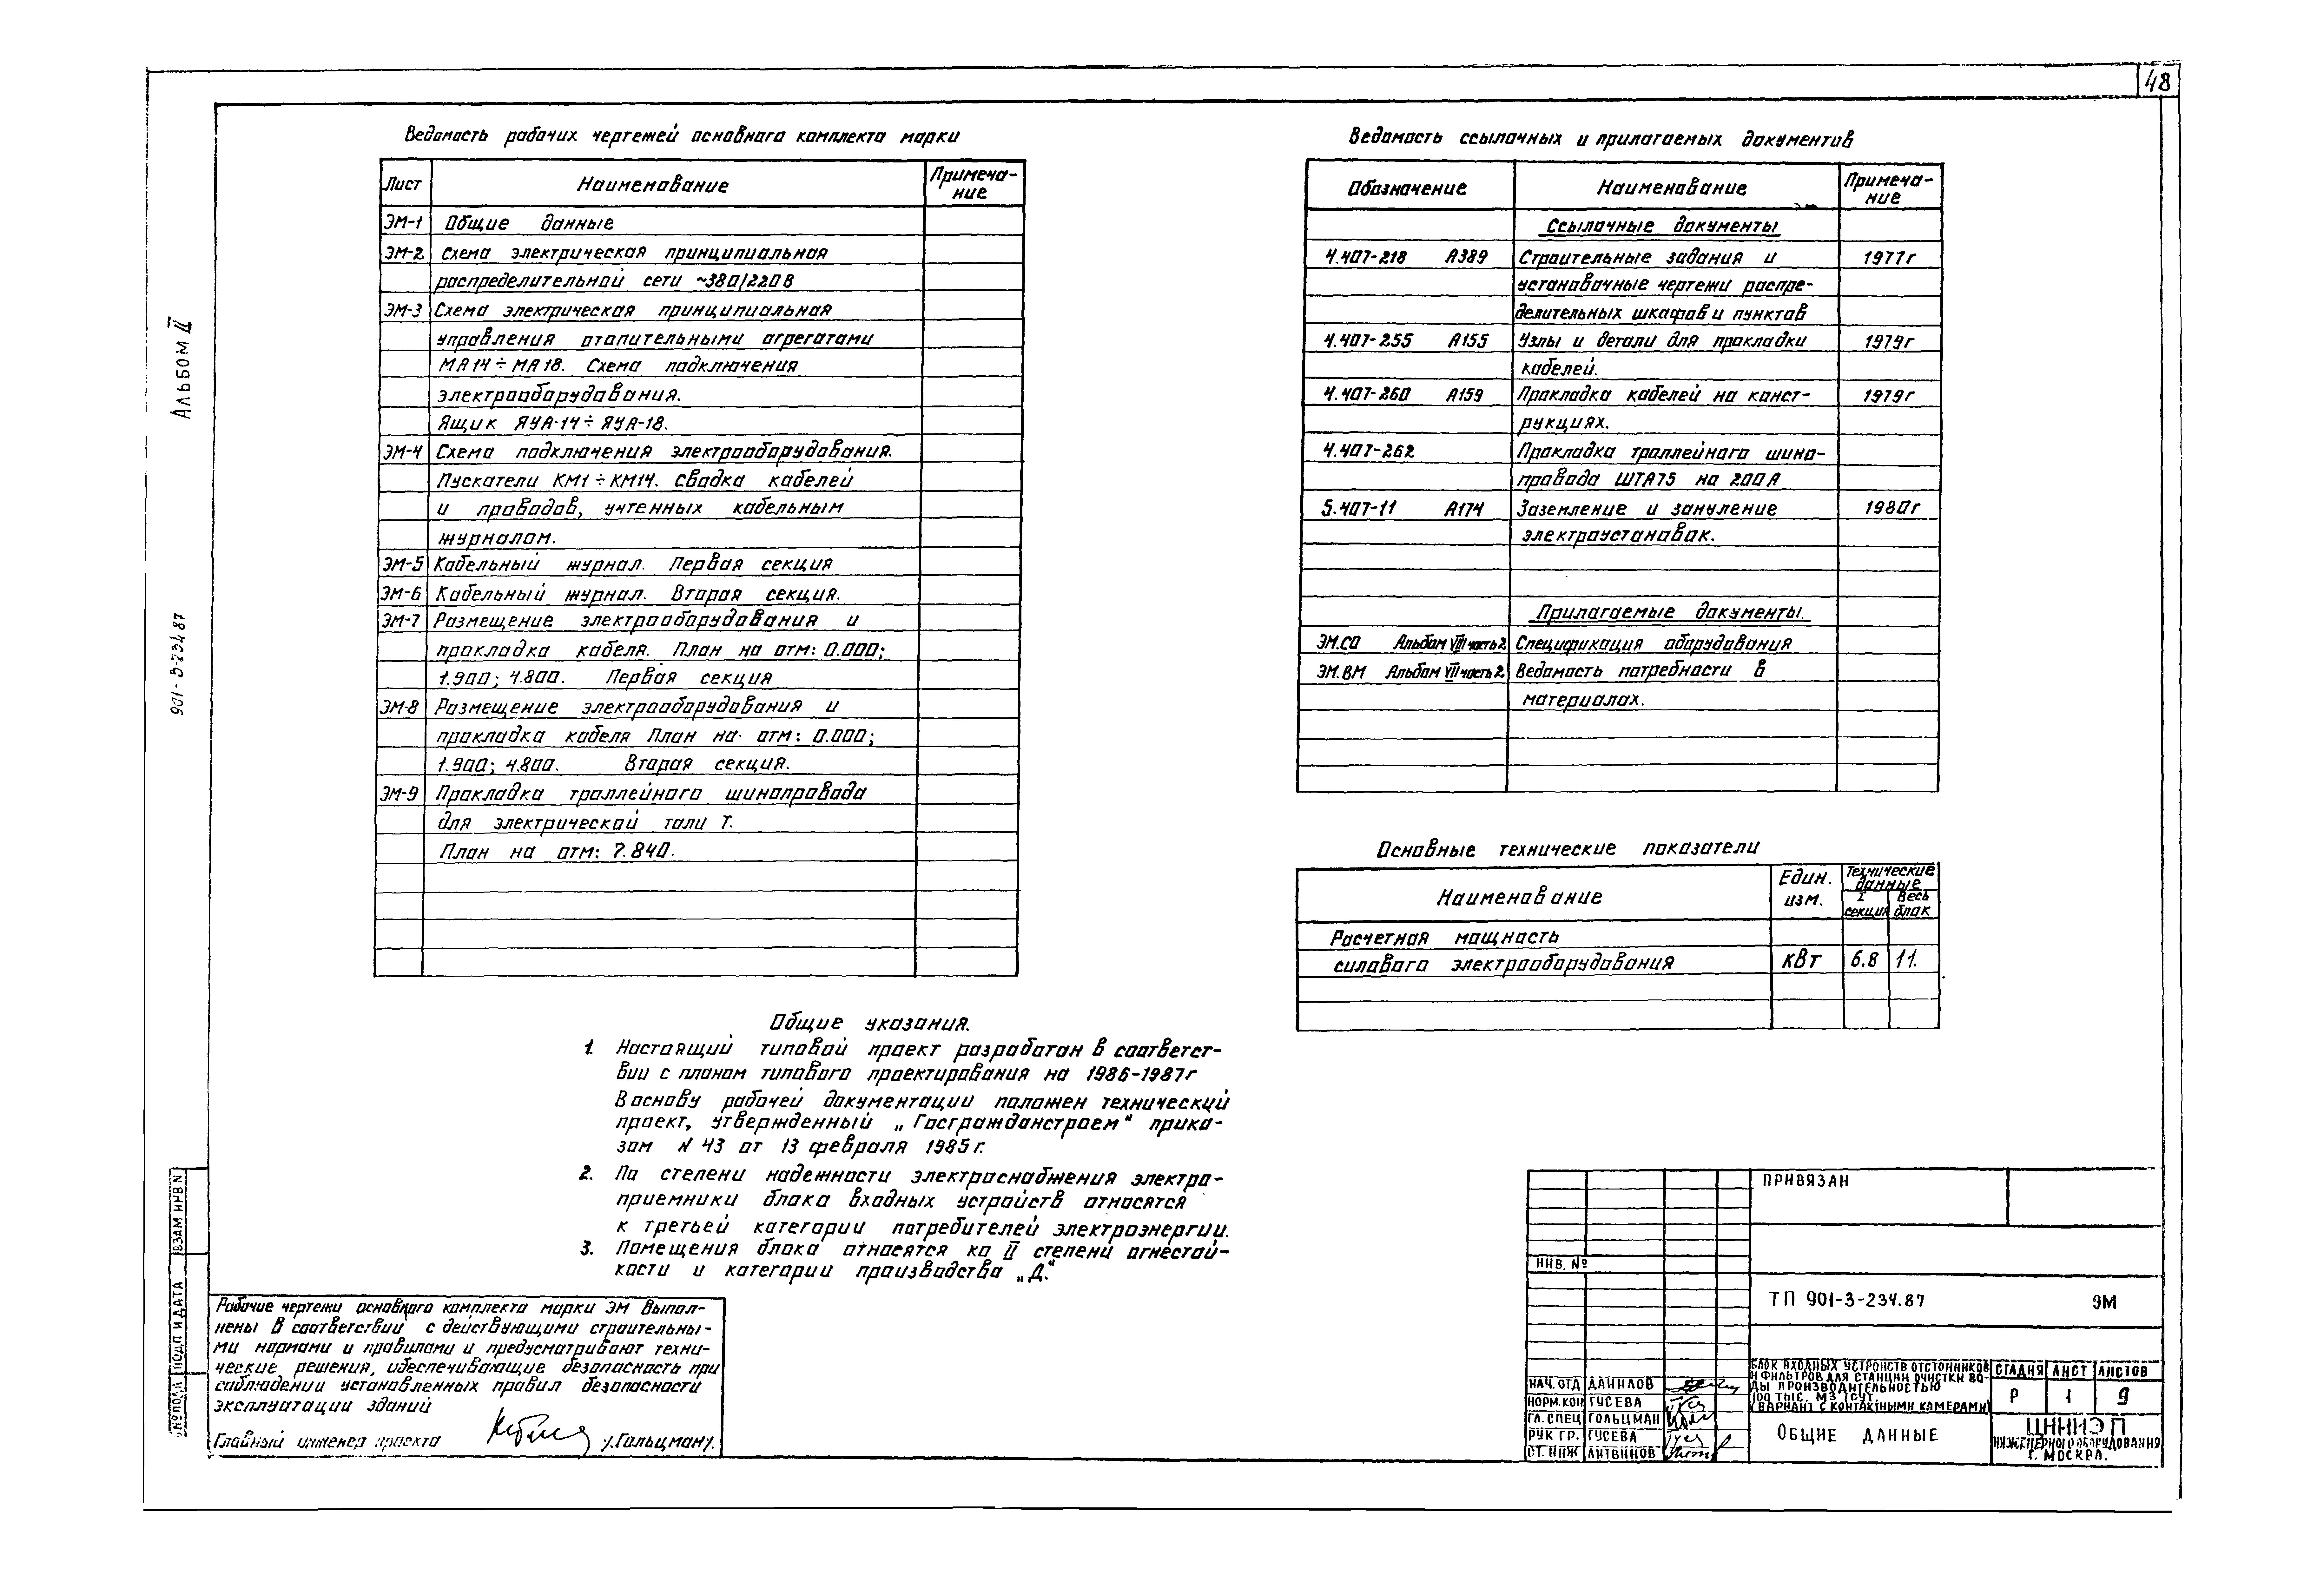 48
Альбом II
901-3-234.87
Ведомость рабочих чертежей основного комплекта марки
Лист Наименование Примеча-
ние
ЭМ-1 Общие данные
ЭМ-2 Схема электрическая принципиальная
распределительной сети ~380/220В
ЭМ-3 Схема электрическая принципиальная
управления отопительными агрегатами
МА14÷МА18. Схема подключения
электрооборудования.
Ящик ЯУА-14÷ЯУА-18.
ЭМ-4 Схема подключения электрооборудования.
Пускатели КМ1÷КМ14. Сводка кабелей
и проводов, учтенных кабельным
журналом.
ЭМ-5 Кабельный журнал. Первая секция
ЭМ-6 Кабельный журнал. Вторая секция.
ЭМ-7 Размещение электрооборудования и
прокладка кабеля. План на отм: 0.000;
1.900; 4.800. Первая секция
ЭМ-8 Размещение электрооборудования и
прокладка кабеля План на отм: 0.000;
1.900; 4.800. Вторая секция.
ЭМ-9 Прокладка троллейного шинопровода
для электрической тали Т.
План на отм: 7.840.
Ведомость ссылочных и прилагаемых документов
Обозначение Наименование Примеча-
ние
Ссылочные документы
4.407-218 А389 Строительные задания и 1977г
установочные чертежи распре-
делительных шкафов и пунктов
4.407-255 А155 Узлы и детали для прокладки 1979г
кабелей.
4.407-260 А159 Прокладка кабелей на конст- 1979г
рукциях.
4.407-262 Прокладка троллейного шино-
провода ШТА75 на 200А
5.407-11 А174 Заземление и зануление 1980г
электроустановок.
Прилагаемые документы.
ЭМ.СО Альбом VIII часть 2 Спецификация оборудования
ЭМ.ВМ Альбом VII часть 2 Ведомость потребности в
материалах.
Основные технические показатели
Наименование Един. изм. Технические данные
I секция Весь блок
Расчетная мощность
силового электрооборудования кВт 6.8 11.
Общие указания.
1. Настоящий типовой проект разработан в соответст-
вии с планом типового проектирования на 1986-1987г
В основу рабочей документации положен технический
проект, утвержденный „Госгражданстроем" прика-
зом N 43 от 13 февраля 1985г.
2. По степени надежности электроснабжения электро-
приемники блока входных устройств относятся
к третьей категории потребителей электроэнергии.
3. Помещения блока относятся ко II степени огнестой-
кости и категории производства „Д."
Рабочие чертежи основного комплекта марки ЭМ выпол-
нены в соответствии с действующими строительны-
ми нормами и правилами и предусматривают техни-
ческие решения, обеспечивающие безопасность при
соблюдении установленных правил безопасности
эксплуатации зданий
Главный инженер проекта /Гольцман/.
ВЗАМ ИНВ N
ПОДП И ДАТА
N ПОДЛ
ПРИВЯЗАН
ИНВ. №
ТП 901-3-234.87 ЭМ
НАЧ. ОТД ДАНИЛОВ
НОРМ. КОН ГУСЕВА
ГЛ. СПЕЦ ГОЛЬЦМАН
РУК ГР. ГУСЕВА
СТ. ИНЖ ЛИТВИНОВ
БЛОК ВХОДНЫХ УСТРОЙСТВ ОТСТОЙНИКОВ
И ФИЛЬТРОВ ДЛЯ СТАНЦИИ ОЧИСТКИ ВО-
ДЫ ПРОИЗВОДИТЕЛЬНОСТЬЮ
100 ТЫС. М3/СУТ.
(ВАРИАНТ С КОНТАКТНЫМИ КАМЕРАМИ)
СТАДИЯ ЛИСТ ЛИСТОВ
Р 1 9
ОБЩИЕ ДАННЫЕ
ЦНИИЭП
ИНЖЕНЕРНОГО ОБОРУДОВАНИЯ
Г. МОСКВА.